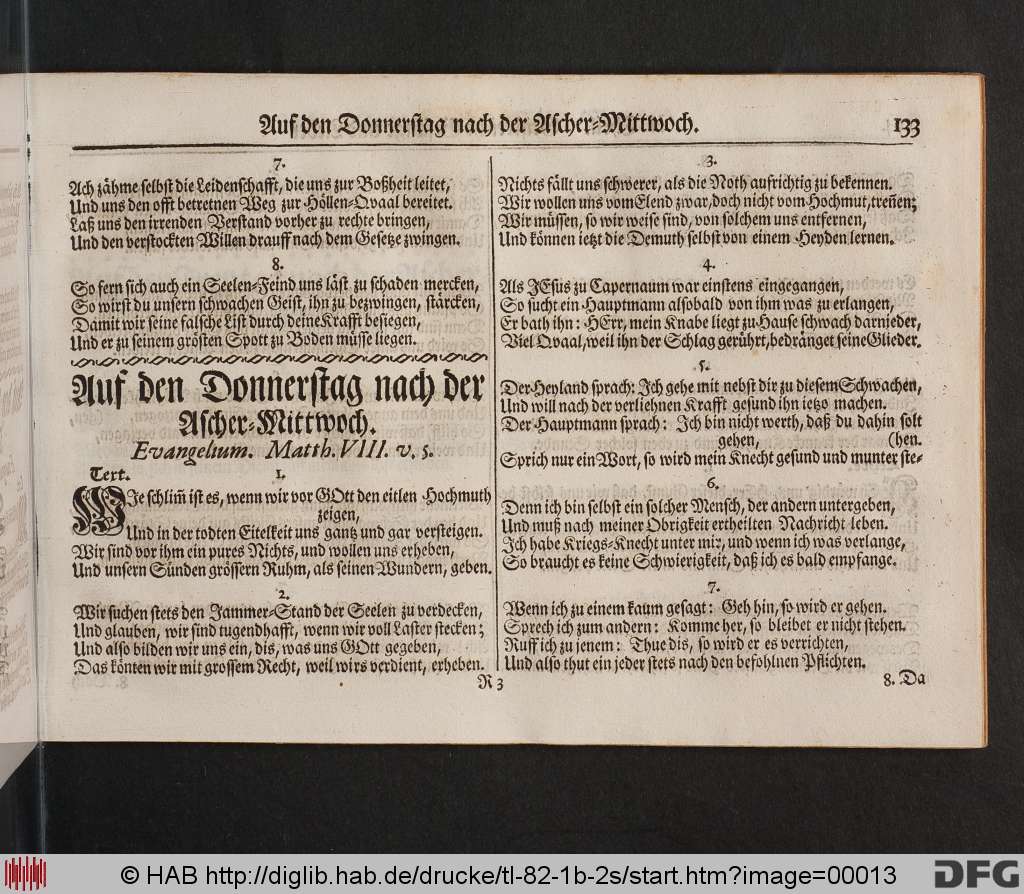 Auf den Donnerstag nach der Ascher-Mittwoch. 133
7.
Ach zähme selbst die Leidenschafft, die uns zur Boßheit leitet,
Und uns den offt betretnen Weg zur Höllen-Qvaal bereitet.
Laß uns den irrenden Verstand vorher zu rechte bringen,
Und den verstockten Willen drauff nach dem Gesetze zwingen.
8.
So fern sich auch ein Seelen-Feind uns läst zu schaden mercken,
So wirst du unsern schwachen Geist, ihn zu bezwingen, stärcken,
Damit wir seine falsche List durch deine Krafft besiegen,
Und er zu seinem grösten Spott zu Boden müsse liegen.
Auf den Donnerstag nach der
Ascher-Mittwoch.
Evangelium. Matth. VIII. v. 5.
Text. 1.
WIe schlim̃ ist es, wenn wir vor GOtt den eitlen Hochmuth
zeigen,
Und in der todten Eitelkeit uns gantz und gar versteigen.
Wir sind vor ihm ein pures Nichts, und wollen uns erheben,
Und unsern Sünden grössern Ruhm, als seinen Wundern, geben.
2.
Wir suchen stets den Jammer-Stand der Seelen zu verdecken,
Und glauben, wir sind tugendhafft, wenn wir voll Laster stecken;
Und also bilden wir uns ein, dis, was uns GOtt gegeben,
Das könten wir mit grossem Recht, weil wirs verdient, erheben.
R 3
3.
Nichts fällt uns schwerer, als die Noth aufrichtig zu bekennen.
Wir wollen uns vom Elend zwar, doch nicht vom Hochmut, treñen;
Wir müssen, so wir weise sind, von solchem uns entfernen,
Und können ietzt die Demuth selbst von einem Heyden lernen.
4.
Als JEsus zu Capernaum war einstens eingegangen,
So sucht ein Hauptmann alsobald von ihm was zu erlangen,
Er bath ihn: HErr, mein Knabe liegt zu Hause schwach darnieder,
Viel Qvaal, weil ihn der Schlag gerührt, bedränget seine Glieder.
5.
Der Heyland sprach: Ich gehe mit nebst dir zu diesem Schwachen,
Und will nach der verliehnen Krafft gesund ihn ietzo machen.
Der Hauptmann sprach: Ich bin nicht werth, daß du dahin solt
gehen, (hen.
Sprich nur ein Wort, so wird mein Knecht gesund und munter ste-
6.
Denn ich bin selbst ein solcher Mensch, der andern untergeben,
Und muß nach meiner Obrigkeit ertheilten Nachricht leben.
Ich habe Kriegs-Knecht unter mir, und wenn ich was verlange,
So braucht es keine Schwierigkeit, daß ich es bald empfange.
7.
Wenn ich zu einem kaum gesagt: Geh hin, so wird er gehen.
Sprech ich zum andern: Komme her, so bleibet er nicht stehen.
Ruff ich zu jenem: Thue dis, so wird er es verrichten,
Und also thut ein jeder stets nach den befohlnen Pflichten.
8. Da
© HAB http://diglib.hab.de/drucke/tl-82-1b-2s/start.htm?image=00013
DFG